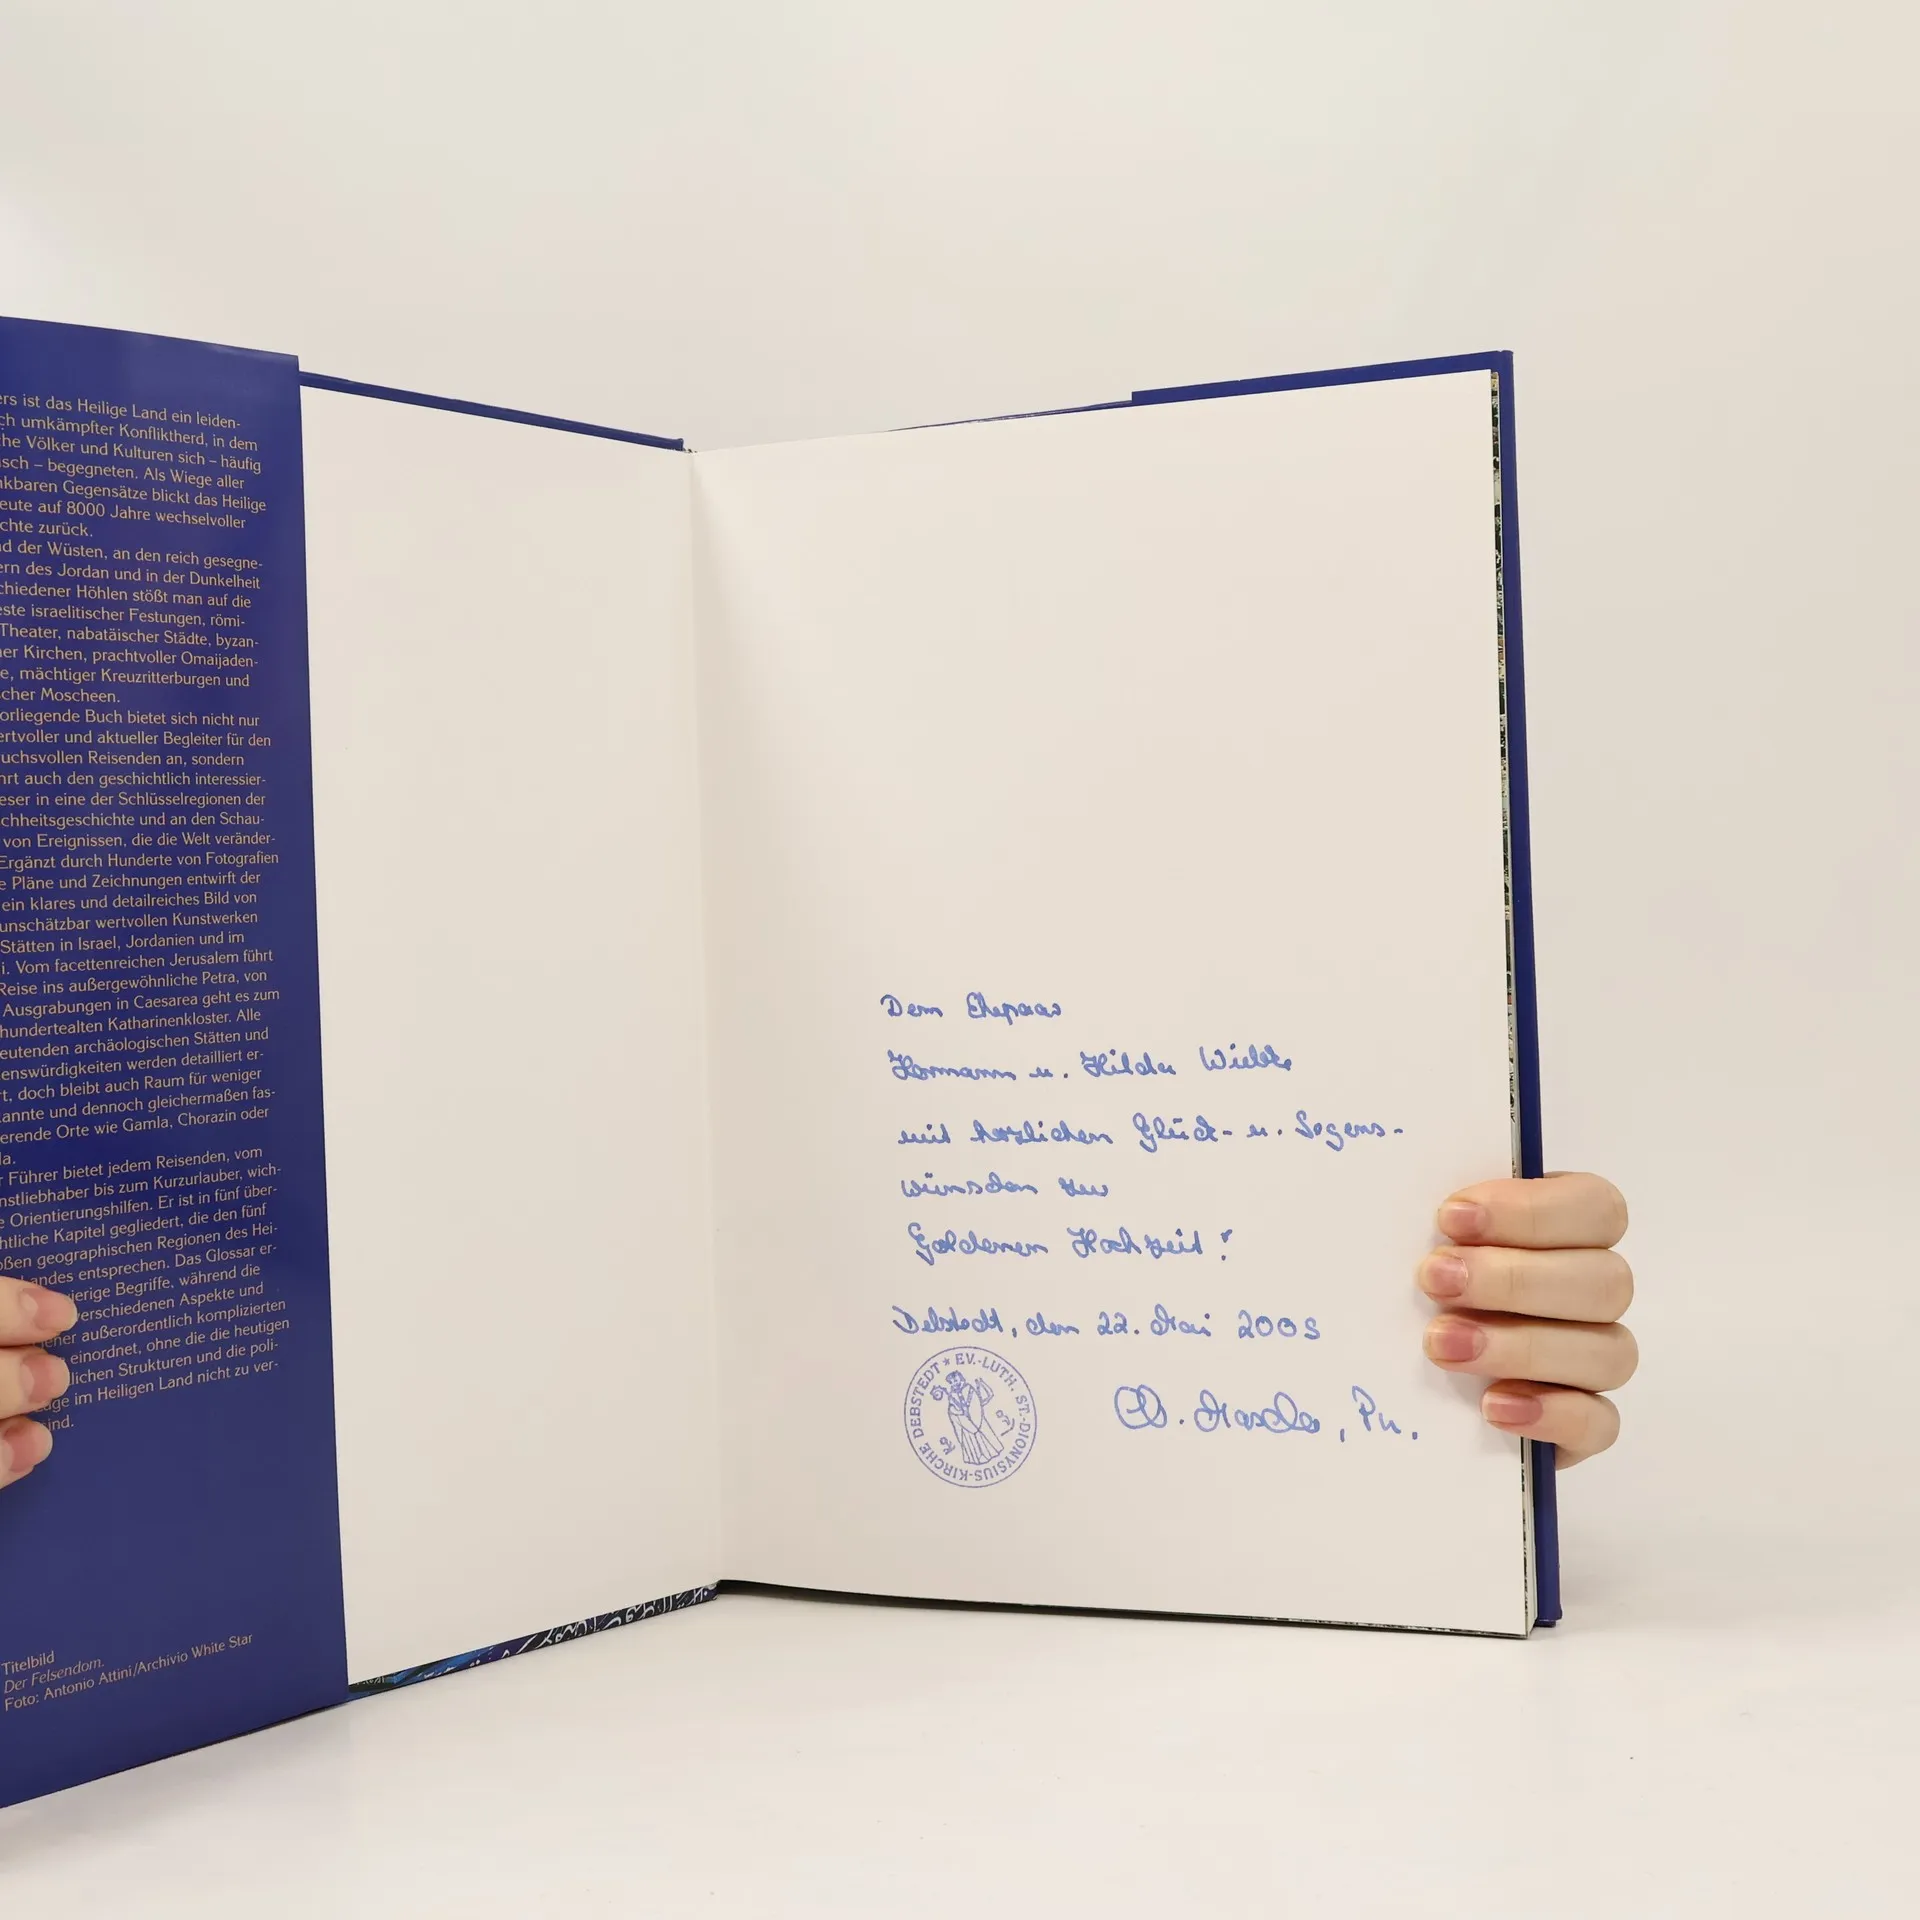 ers ist das Heilige Land ein leiden-
ch umkämpfter Konfliktherd, in dem
che Völker und Kulturen sich – häufig
isch – begegneten. Als Wiege aller
nkbaren Gegensätze blickt das Heilige
eute auf 8000 Jahre wechselvoller
chte zurück.
nd der Wüsten, an den reich gesegne-
ern des Jordan und in der Dunkelheit
chiedener Höhlen stößt man auf die
este israelitischer Festungen, römi-
Theater, nabatäischer Städte, byzan-
her Kirchen, prachtvoller Omaijaden-
e, mächtiger Kreuzritterburgen und
scher Moscheen.
orliegende Buch bietet sich nicht nur
ertvoller und aktueller Begleiter für den
uchsvollen Reisenden an, sondern
hrt auch den geschichtlich interessier-
eser in eine der Schlüsselregionen der
chheitsgeschichte und an den Schau-
von Ereignissen, die die Welt veränder-
Ergänzt durch Hunderte von Fotografien
e Pläne und Zeichnungen entwirft der
ein klares und detailreiches Bild von
unschätzbar wertvollen Kunstwerken
Stätten in Israel, Jordanien und im
i. Vom facettenreichen Jerusalem führt
Reise ins außergewöhnliche Petra, von
Ausgrabungen in Caesarea geht es zum
hundertealten Katharinenkloster. Alle
eutenden archäologischen Stätten und
enswürdigkeiten werden detailliert er-
rt, doch bleibt auch Raum für weniger
kannte und dennoch gleichermaßen fas-
erende Orte wie Gamla, Chorazin oder
la.
r Führer bietet jedem Reisenden, vom
nstliebhaber bis zum Kurzurlauber, wich-
e Orientierungshilfen. Er ist in fünf über-
htliche Kapitel gegliedert, die den fünf
oßen geographischen Regionen des Hei-
Landes entsprechen. Das Glossar er-
wierige Begriffe, während die
verschiedenen Aspekte und
einer außerordentlich komplizierten
einordnet, ohne die die heutigen
lichen Strukturen und die poli-
age im Heiligen Land nicht zu ver-
sind.
Titelbild
Der Felsendom.
Foto: Antonio Attini/Archivio White Star
Dem Ehepaar
Hermann u. Hilda
mit herzlichen Glück- u. Segens-
wünschen zur
Goldenen Hochzeit!
Debstedt, den 22. Mai 2003
EV.-LUTH. ST.-DIONYSIUS-KIRCHE DEBSTEDT *